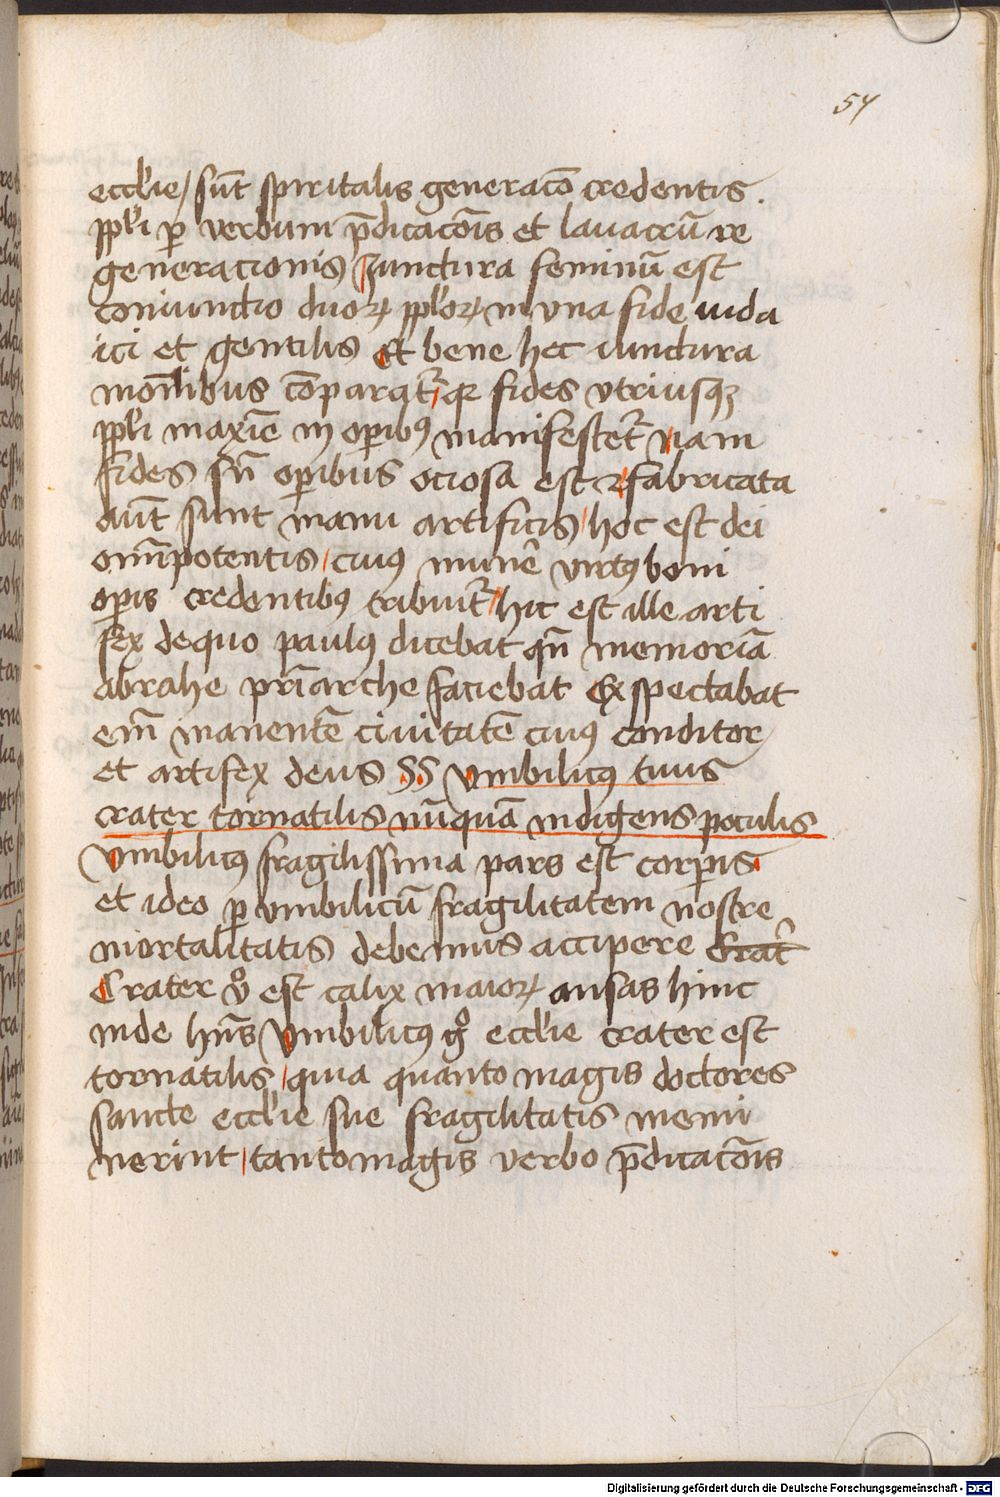 54
eccl'ie / sūt spiritalis generacō credentis .
ppl'i ꝑ verbum p̄dicacōis et lauacrū re
generacionis Iunctura feminū est
coniunctio duoꝝ ppl'oꝝ in vna fide iuda
ici et gentilis Et bene hec iunctura
monilibus cōparat᷑ / qꝛ fides vtriusqꝫ
ppl'i maxīe in oꝑibꝰ manifestet᷑ nam
fides sn̄ oꝑibus ociosa est ⁊ fabricata
aūt sunt manu artificis / hoc est dei
om̄ipotentis / cuiꝰ munē virtꝰ boni
oꝑis credentibꝰ tribuit᷑ / hic est ille arti
fex dequo paulꝰ dicebat qn̄ memoriā
abrahe pr̄iarche faciebat Exspectabat
em̄ manentē ciuitatē cuiꝰ conditor
et artifex deus §§ vmbilicꝰ tuus
crater tornatilis nūquā indigens poculis
Vmbilicꝰ fragilissima pars est corꝑis
et ideo ꝑ vmbilicū fragilitatem nostre
mortalitatis debemus accipere Crat᷑
Crater v̊ est calix maioꝝ ansas hinc
inde hn̄s Vmbilicꝰ g̊ eccl'ie crater est
tornatilis / quia quanto magis doctores
sancte eccl'ie sue fragilitatis memi
nerint / tanto magis verbo p̄dicacōis
Digitalisierung gefördert durch die Deutsche Forschungsgemeinschaft - DFG